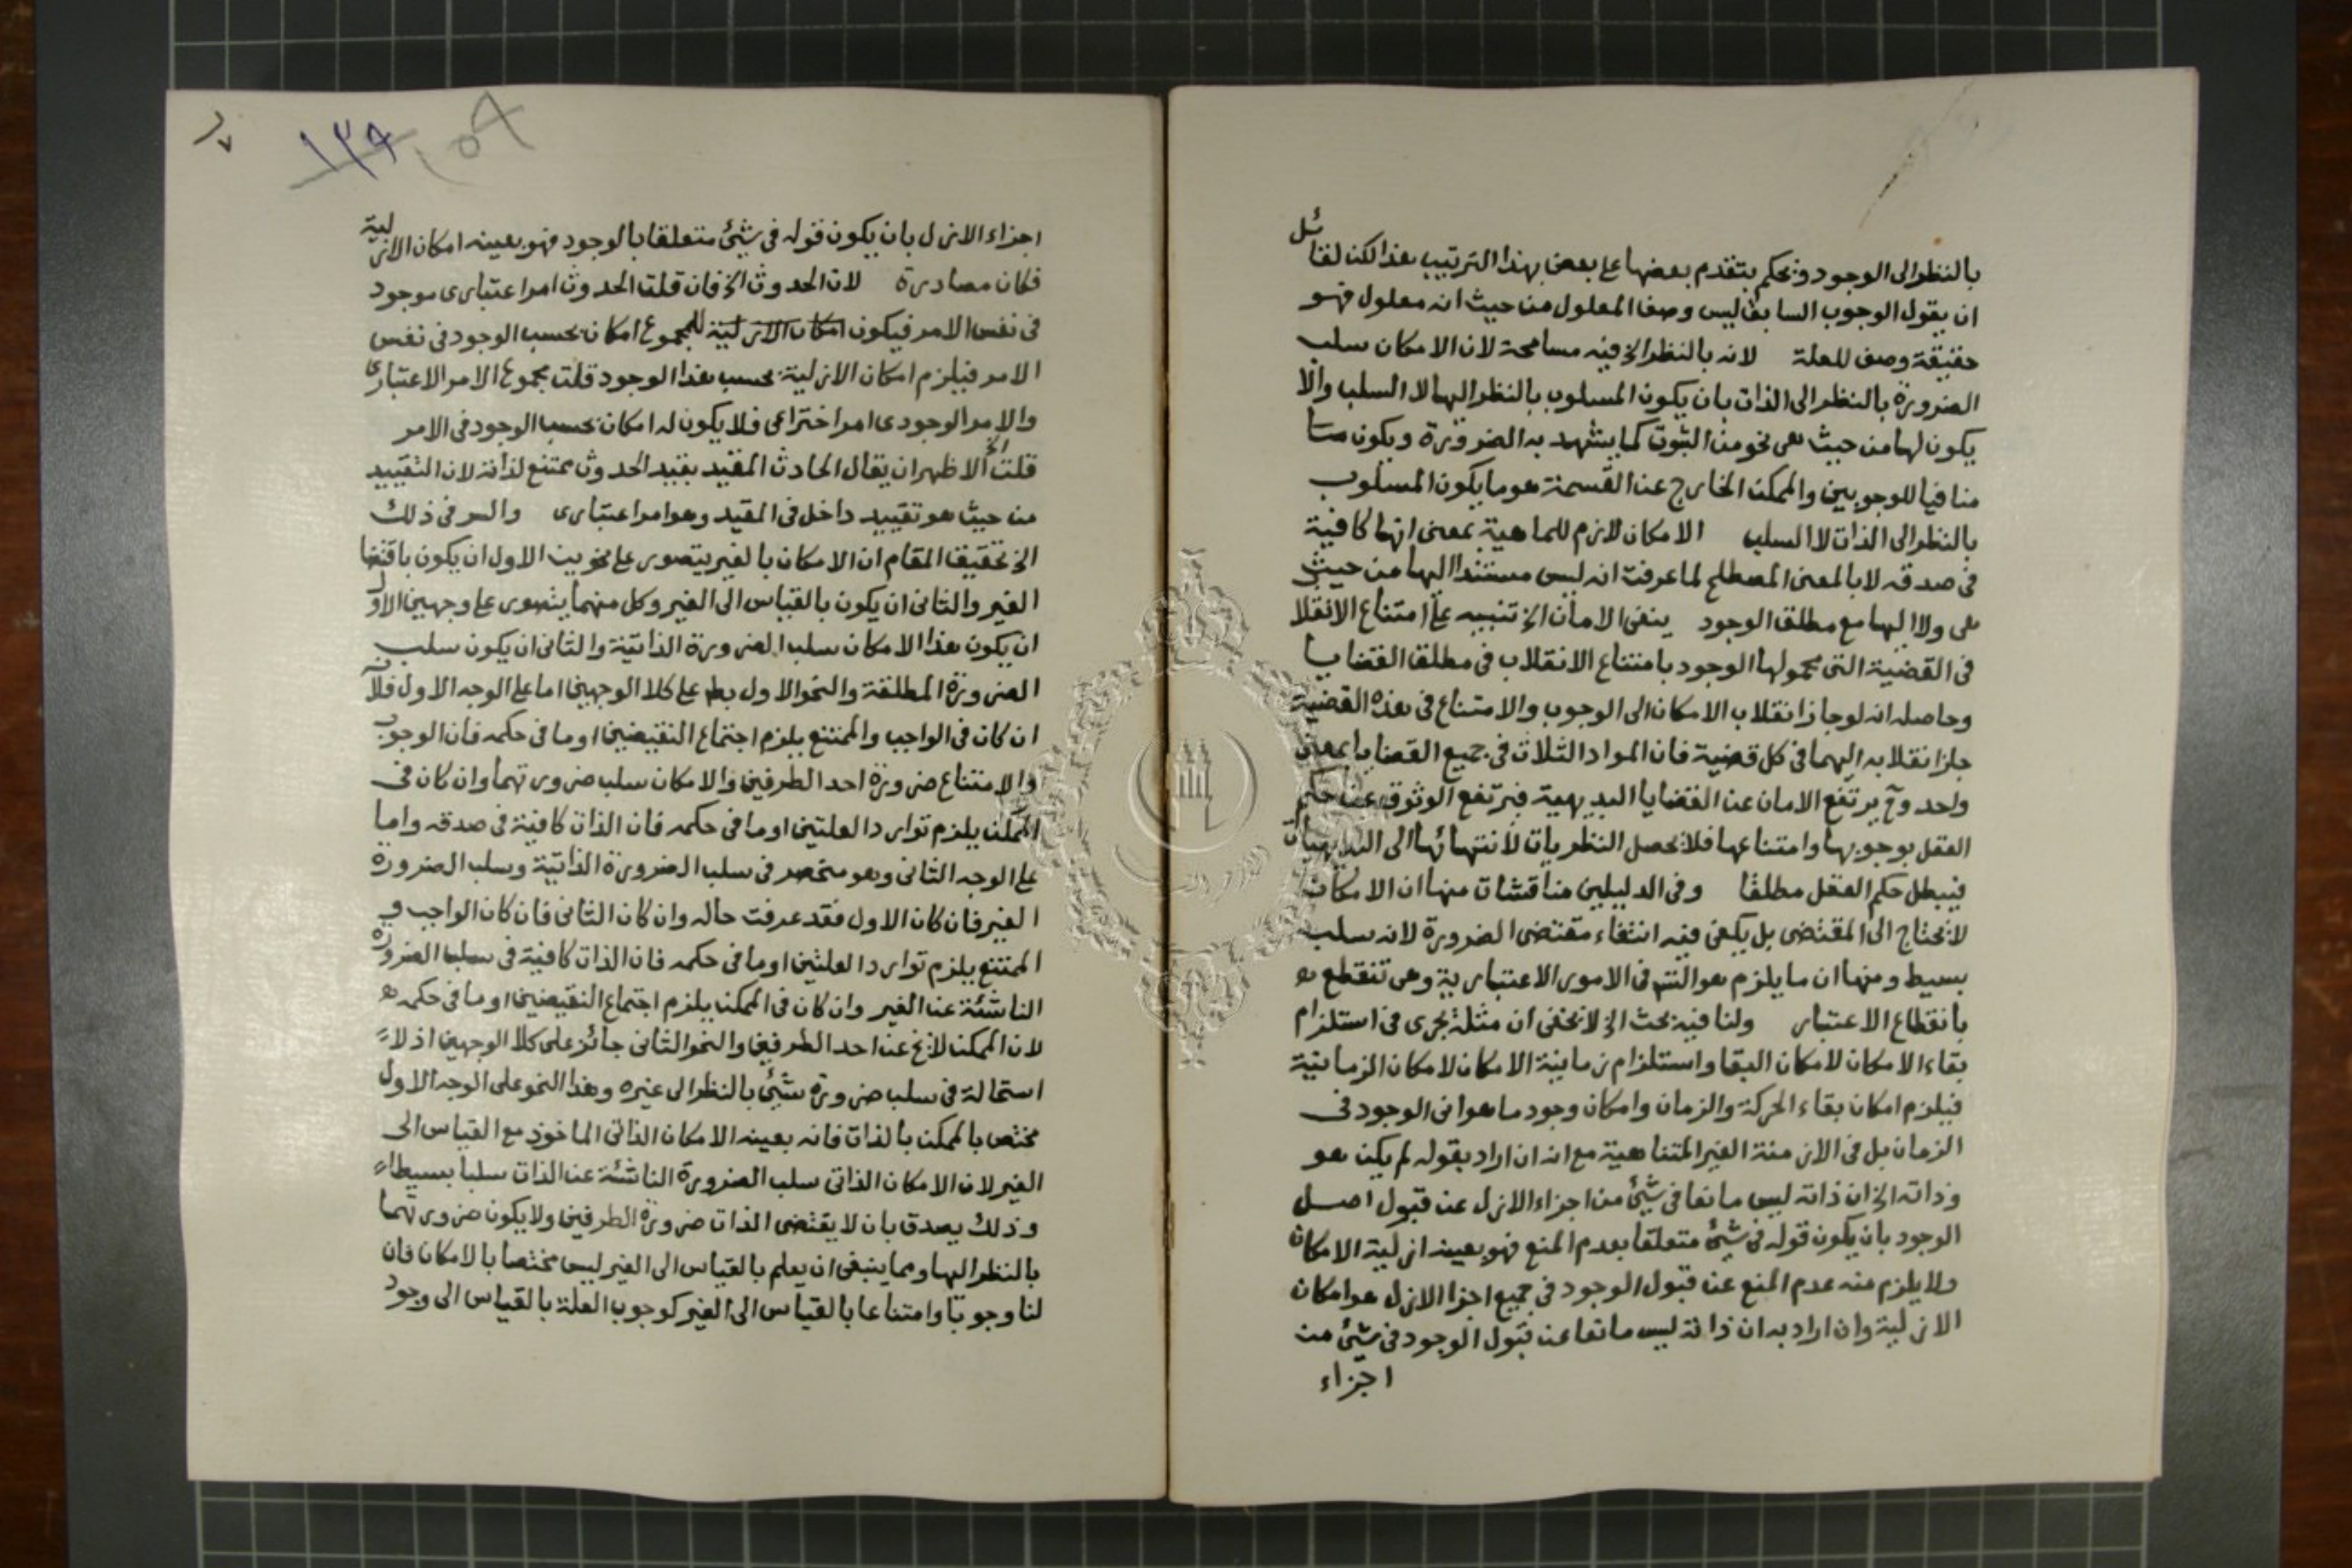 بالنظر الى الوجود ونحكم بتقدم بعضها على بعض بهذا الترتيب هذا لكن لقائل
ان يقول الوجوب السابق ليس وصف المعلول من حيث انه معلول فهو
حقيقة وصف للعلة لانه بالنظر الخ فيه مسامحة لان الامكان سلب
الضرورة بالنظر الى الذات بان يكون المسلوب بالنظر اليها لا السلب والا
يكون لها من حيث هى نحو من الثبوت كما يشهد به الضرورة ويكون
منافيا للوجوبين والممكن الخارج عن القسمة هو ما يكون المسلوب
بالنظر الى الذات لا السلب الامكان لازم للماهية بمعنى انها كافية
فى صدقه لا بالمعنى المصطلح لما عرفت انه ليس مستندا اليها من حيث
هى ولا اليها مع مطلق الوجود ينفى الامان الخ تنبيه على امتناع الانقلا
فى القضية التى محمولها الوجود بامتناع الانقلاب فى مطلق القضايا
وحاصله انه لو جاز انقلاب الامكان الى الوجوب والامتناع فى هذه القضية
جاز انقلابه اليهما فى كل قضية فان المواد الثلاث فى جميع القضايا بمعنى
واحد وح يرتفع الامان عن القضايا البديهية فيرتفع الوثوق عن حكم
العقل بوجوبها وامتناعها فلا يحصل النظريات لانتهائها الى البديهيات
فيبطل حكم العقل مطلقا وفى الدليلين مناقشات منها ان الامكان
لا يحتاج الى المقتضى بل يكفى فيه انتفاء مقتضى الضرورة لانه سلب
بسيط ومنها ان ما يلزم هو التس فى الامور الاعتبارية وهى تنقطع
بانقطاع الاعتبار ولنا فيه بحث الخ لا يخفى ان مثله يجرى فى استلزام
بقاء الامكان لامكان البقا واستلزام زمانية الامكان لامكان الزمانية
فيلزم امكان بقاء الحركة والزمان وامكان وجود ما هو انى الوجود فى
الزمان بل فى الازمنة الغير المتناهية مع انه ان اراد بقوله لم يكن هو
وذاته الخ ان ذاته ليس مانعا فى شئ من اجزاء الازل عن قبول اصل
الوجود بان يكون قوله فى شئ متعلقا بعدم المنع فهو بعينه ازلية الامكان
ولا يلزم منه عدم المنع عن قبول الوجود فى جميع اجزا الازل هو امكان
الازلية وان اراد به ان ذاته ليس مانعا عن قبول الوجود فى شئ من
اجزاء
١٣٩
اجزاء الازل بان يكون قوله فى شئ متعلقا بالوجود فهو بعينه امكان الازلية
فكان مصادرة لان الحدوث الخ فان قلت الحدوث امر اعتبارى موجود
فى نفس الامر فيكون امكان الازلية للمجموع امكان بحسب الوجود فى نفس
الامر فيلزم امكان الازلية بحسب هذا الوجود قلت مجموع الامر الاعتبارى
والامر الوجودى امر اختراعى فلا يكون له امكان بحسب الوجود فى الامر
قلت الخ الاظهر ان يقال الحادث المقيد بقيد الحدوث ممتنع لذاته لان التقييد
من حيث هو تقييد داخل فى المقيد وهو امر اعتبارى والسر فى ذلك
الخ تحقيق المقام ان الامكان بالغير يتصور على نحوين الاول ان يكون باقتضا
الغير والثانى ان يكون بالقياس الى الغير وكل منهما يتصور على وجهين الاول
ان يكون هذا الامكان سلب الضرورة الذاتية والثانى ان يكون سلب
الضرورة المطلقة والنحو الاول بط على كلا الوجهين اما على الوجه الاول فلان
ان كان فى الواجب والممتنع يلزم اجتماع النقيضين او ما فى حكمه فان الوجوب
والامتناع ضرورة احد الطرفين والامكان سلب ضرورتهما وان كان فى
الممكن يلزم توارد العلتين او ما فى حكمه فان الذات كافية فى صدقه واما
على الوجه الثانى وهو منحصر فى سلب الضرورة الذاتية وسلب الضرورة
الغير فان كان الاول فقد عرفت حاله وان كان الثانى فان كان الواجب و
الممتنع يلزم توارد العلتين او ما فى حكمه فان الذات كافية فى سلب الضرورة
الناشئة عن الغير وان كان فى الممكن يلزم اجتماع النقيضين او ما فى حكمه
لان الممكن لا يخ عن احد الطرفين والنحو الثانى جائز على كلا الوجهين اذ لا
استحالة فى سلب ضرورة شئ بالنظر الى غيره وهذا النحو على الوجه الاول
مختص بالممكن بالذات فانه بعينه الامكان الذاتى الماخوذ مع القياس الى
الغير لان الامكان الذاتى سلب الضرورة الناشئة عن الذات سلبا بسيطا
وذلك يصدق بان لا يقتضى الذات ضرورة الطرفين ولا يكون ضرورتهما
بالنظر اليها ومما ينبغى ان يعلم بالقياس الى الغير ليس مختصا بالامكان فان
لنا وجوبا وامتناعا بالقياس الى الغير كوجوب العلة بالقياس الى وجود